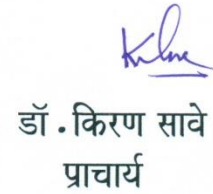 डॉ . किरण सावे
प्राचार्य